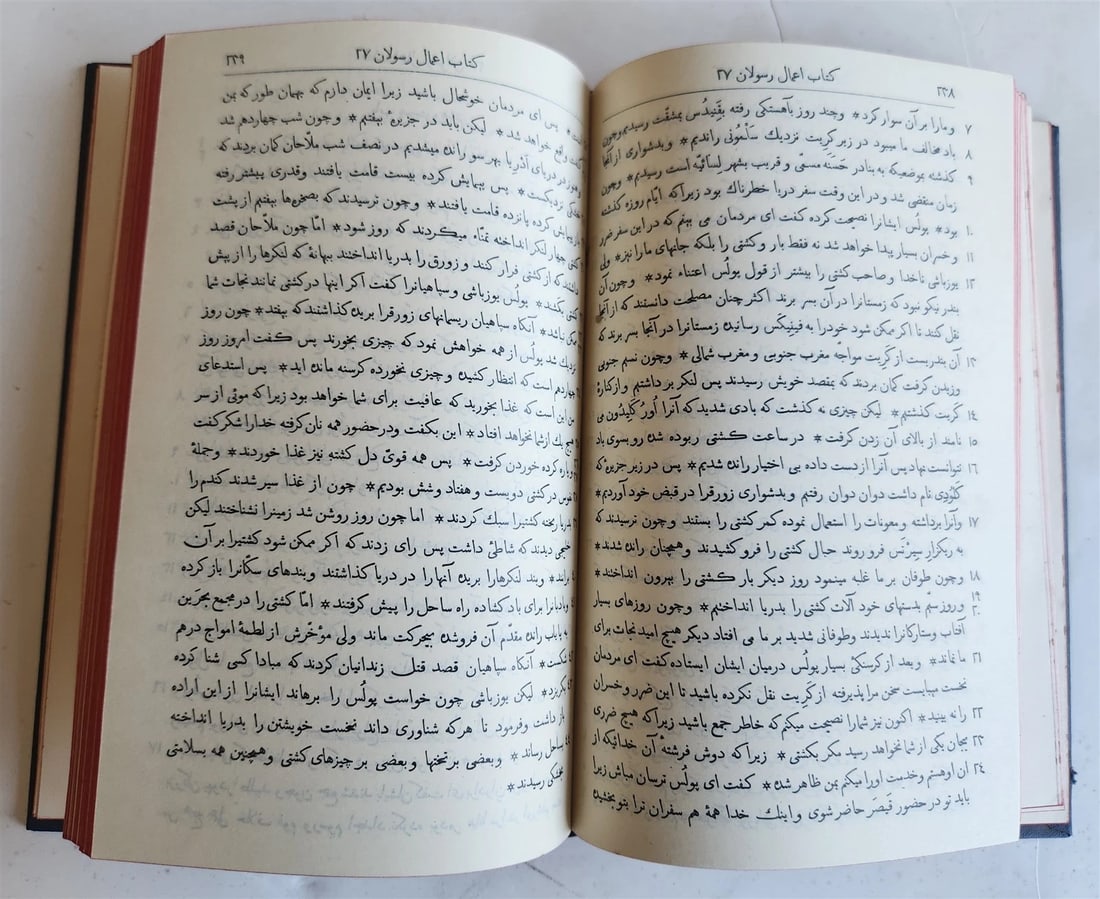 کتاب اعمال رسولان ۲۷
۲۳۸
۷ ومارا برآن سوار کرد * وچند روز بآهستگی رفته بقِنیدُس بمشقّت رسیدیم وچون
۸ باد مخالف ما میبود در زیر کریت نزدیك سَلْمُونی راندیم * وبدشواری از آنجا
۹ گذشته بموضعیکه به بنادر حَسَنَه مسمّی و قریب بشهر لسائیّه است رسیدیم * وچون
زمان منقضی شد و در این وقت سفر دریا خطرناك بود زیرا که ایّام روزه گذشته
۱۰ بود * پولُس ایشانرا نصیحت کرده گفت ای مردمان می بینم که در این سفر ضرر
۱۱ وخسران بسیار پیدا خواهد شد نه فقط بار وکشتی را بلکه جانهای مارا نیز * ولی
۱۲ یوزباشی ناخدا وصاحب کشتی را بیشتر از قول پولُس اعتناء نمود * وچون آن
بندر نیکو نبود که زمستانرا در آن بسر برند اکثر چنان مصلحت دانستند که از آنجا
نقل کنند تا اگر ممکن شود خودرا به فینیکس رسانیده زمستانرا در آنجا بسر برند که
۱۳ آن بندریست از کریت مواجهٔ مغرب جنوبی و مغرب شمالی * وچون نسیم جنوبی
وزیدن گرفت گمان بردند که بمقصد خویش رسیدند پس لنگر بر داشتیم و از کنارهٔ
۱۴ کریت گذشتیم * لیکن چیزی نه گذشت که بادی شدید که آنرا اُورُکْلِیدُون می
۱۵ نامند از بالای آن زدن گرفت * در ساعت کشتی ربوده شده رو بسوی باد
۱۶ نتوانست نهاد پس آنرا از دست داده بی اختیار رانده شدیم * پس در زیر جزیرهٔ که
کَلَوْدِی نام داشت دوان دوان رفتیم وبدشواری زورقرا در قبض خود آوردیم *
۱۷ وآنرا برداشته و معونات را استعمال نموده کمر کشتی را بستند وچون ترسیدند که
به ریگزار سِیرْتِس فرو روند حبال کشتی را فرو کشیدند وهمچنان رانده شدند *
۱۸ وچون طوفان بر ما غلبه مینمود روز دیگر بار کشتی را بیرون انداختند *
۱۹ وروز سیّم بدستهای خود آلات کشتی را بدریا انداختیم * وچون روزهای بسیار
۲۰ آفتاب وستارگانرا ندیدند وطوفانی شدید بر ما می افتاد دیگر هیچ امید نجات برای
۲۱ ما نماند * وبعد از گرسنگیْ بسیار پولُس درمیان ایشان ایستاده گفت ای مردمان
نخست میبایست سخن مرا پذیرفته از کریت نقل نکرده باشید تا این ضرر وخسران
۲۲ را نه بینید * اکنون نیز شمارا نصیحت میکنم که خاطر جمع باشید زیرا که هیچ ضرری
۲۳ بجان یکی از شما نخواهد رسید مگر بکشتی * زیرا که دوش فرشتهٔ آن خدائیکه از
۲۴ آن اوهستم وخدمت اورا میکنم بمن ظاهر شده * گفت ای پولُس ترسان مباش زیرا
باید تو در حضور قیصَر حاضر شوی و اینك خدا همهٔ هم سفران ترا بتو بخشیده
کتاب اعمال رسولان ۲۷
۲۳۹
پس ای مردمان خوشحال باشید زیرا ایمان دارم که بهمان طور که بمن
واقع خواهد شد * لیکن باید در جزیرهٔ بیفتیم * وچون شب چهاردهم شد
وهنوز در دریای آذریا بهر سو رانده میشدیم در نصف شب ملّاحان گمان بردند که
خشکی نزدیکست * پس پیمایش کرده بیست قامت یافتند وقدری پیشتر رفته
باز پیمایش کرده پانزده قامت یافتند * وچون ترسیدند که بصخرهها بیفتیم از پشت
کشتی چهار لنگر انداخته تمنّاء میکردند که روز شود * امّا چون ملّاحان قصد
داشتند که از کشتی فرار کنند و زورق را بدریا انداختند ببهانهٔ که لنگرها را از پیش
کشتی بکشند * پولُس یوزباشی وسپاهیانرا گفت اگر اینها در کشتی نمانند نجات شما
ممکن نباشد * آنگاه سپاهیان ریسمانهای زورقرا بریده گذاشتند که بیفتد * چون روز
نزدیك شد پولُس از همه خواهش نمود که چیزی بخورند پس گفت امروز روز
چهاردهم است که انتظار کشیده وچیزی نخورده گرسنه مانده اید * پس استدعای
من این است که غذا بخورید که عافیت برای شما خواهد بود زیرا که موئی از سر
هیچ یك از شما نخواهد افتاد * این بگفت ودرحضور همه نان گرفته خدارا شکر گفت
و پاره کرده خوردن گرفت * پس همه قویّ دل گشته نیز غذا خوردند * وجملهٔ
نفوس در کشتی دویست و هفتاد وشش بودیم * چون از غذا سیر شدند گندم را
بدریا ریخته کشتیرا سبك کردند * اما چون روز روشن شد زمینرا نشناختند لیکن
خلیجی دیدند که شاطیْ داشت پس رای زدند که اگر ممکن شود کشتیرا بر آن
برانند * وبند لنگرهارا بریده آنها را در دریا گذاشتند وبندهای سکّانرا باز کرده
وبادبانرا برای باد گشاده راه ساحل را پیش گرفتند * امّا کشتی را در مجمع بحرَین
به پایاب رانده مقدّم آن فروشده بیحرکت ماند ولی مؤخّرش از لطمهٔ امواج درهم
شکست * آنگاه سپاهیان قصد قتل زندانیان کردند که مبادا کسی شنا کرده
بگریزد * لیکن یوزباشی چون خواست پولُس را برهاند ایشانرا از این اراده
باز داشت وفرمود تا هر که شناوری داند نخست خویشتن را بدریا انداخته
بساحل رساند * وبعضی بر تختها و بعضی بر چیزهای کشتی وهمچنین همه بسلامتی
بخشکی رسیدند *